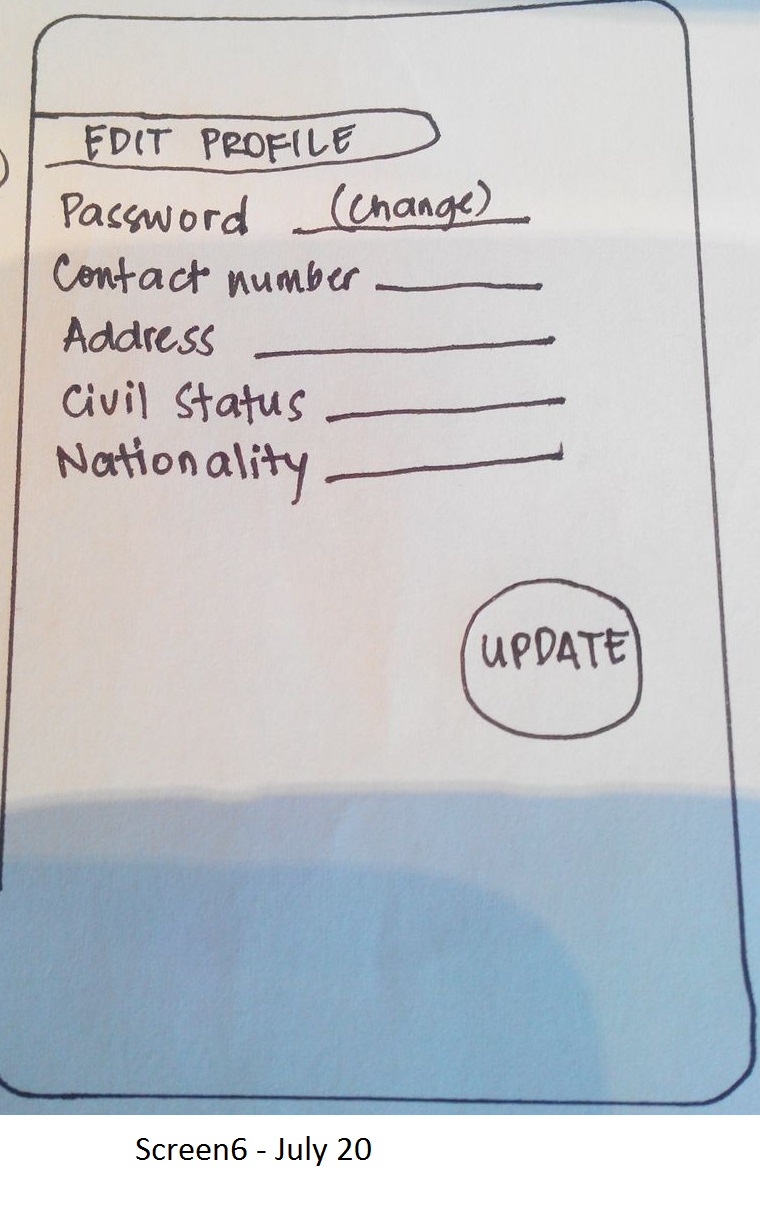 EDIT PROFILE
Password (change)
Contact number
Address
Civil Status
Nationality
UPDATE
Screen6 - July 20